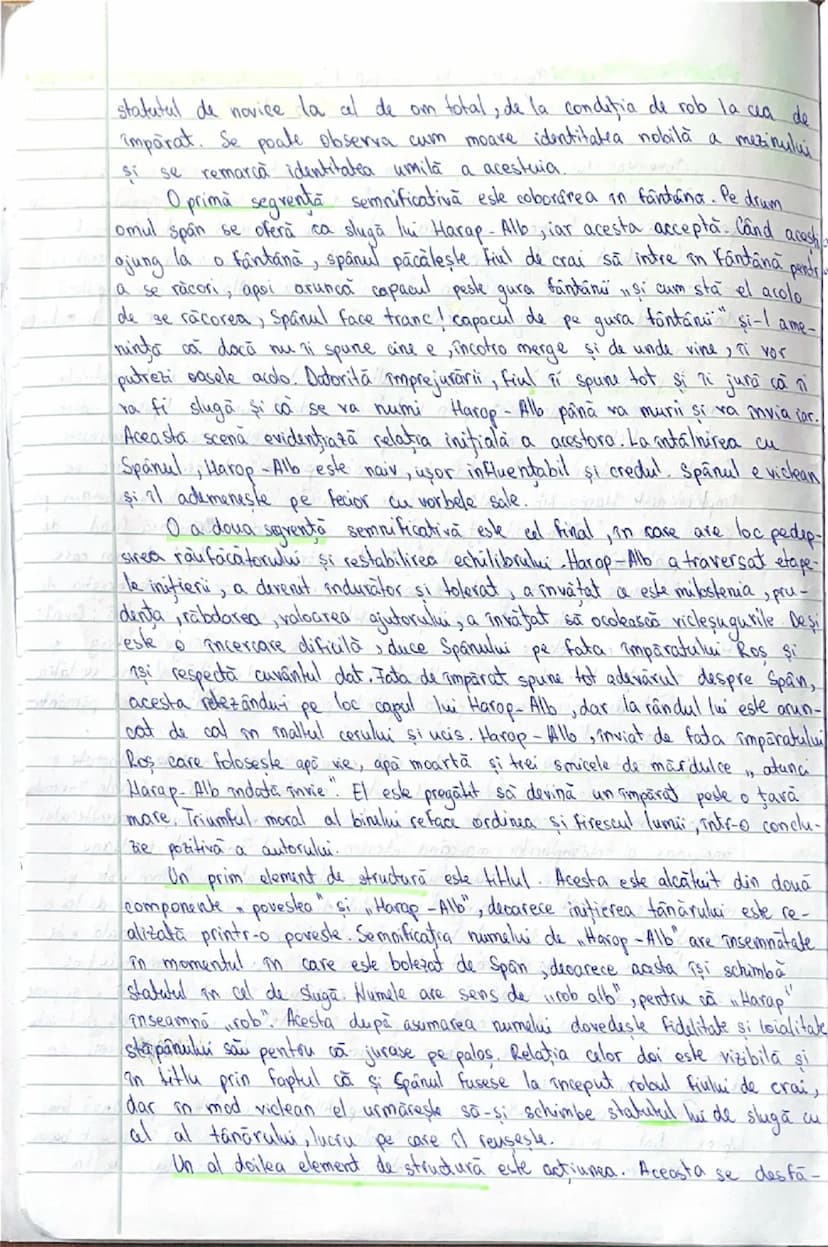 statutul de novice la cel de om total, de la condiția de rob la cea de
împărat. Se poate observa cum moare identitatea nobilă a mezinului
și se remarcă identitatea umilă a acestuia.
O primă segvență semnificativă este coborârea în fântână. Pe drum
omul spân se oferă ca slugă lui Harap-Alb, iar acesta acceptă. Când acești
ajung la o fântână, spânul păcălește fiul de crai să intre în fântână pentru
a se răcori, apoi aruncă capacul peste gura fântânii „și cum stă el acolo
de se răcorea, Spânul face tranc! capacul de pe gura fântânii" și-l ame-
nință că dacă nu îi spune cine e, încotro merge și de unde vine, îi vor
putrezi oasele acolo. Datorită împrejurării, fiul îi spune tot și îi jură că îi
va fi slugă și că se va numi Harap-Alb până va murii și va învia iar.
Această scenă evidențiază relația inițială a acestora. La întâlnirea cu
Spânul, Harap-Alb este naiv, ușor influențabil și credul. Spânul e viclean
și îl ademenește pe fecior cu vorbele sale.
O a doua segvență semnificativă este cel final, în care are loc pedep-
sirea răufăcătorului și restabilirea echilibrului. Harap-Alb a traversat etape-
le inițierii, a devenit îndurător și tolerat, a învățat ce este milostenia, pru-
dența, răbdarea, valoarea ajutorului, a învățat să ocolească vicleșugurile. Deși
este o încercare dificilă, duce Spânului pe fata împăratului Roș și
își respectă cuvântul dat. Fata de împărat spune tot adevărul despre Spân,
acesta retezându-i pe loc capul lui Harap-Alb, dar la rândul lui este arun-
cat de cal în înaltul cerului și ucis. Harap-Alb, înviat de fata împăratului
Roș care folosește apă vie, apă moartă și trei smicele de măr dulce „atunci
Harap-Alb îndată învie". El este pregătit să devină un împărat peste o țară
mare. Triumful moral al binului reface ordinea și firescul lumii, într-o conclu-
zie pozitivă a autorului.
Un prim element de structură este titlul. Acesta este alcătuit din două
componente „povestea" și „Harap-Alb", deoarece inițierea tânărului este re-
alizată printr-o poveste. Semnificația numelui de „Harap-Alb" are însemnătate
în momentul în care este botezat de Spân, deoarece acesta își schimbă
statutul în cel de slugă. Numele are sens de „rob alb", pentru că „Harap"
înseamnă „rob". Acesta după asumarea numelui dovedește fidelitate și loialitate
stăpânului său pentru că jurase pe paloș. Relația celor doi este vizibilă și
în titlu prin faptul că și Spânul fusese la început robul fiului de crai,
dar în mod viclean el urmărește să-și schimbe statutul lui de slugă cu
cel al tânărului, lucru pe care îl reușește.
Un al doilea element de structură este acțiunea. Aceasta se desfă-